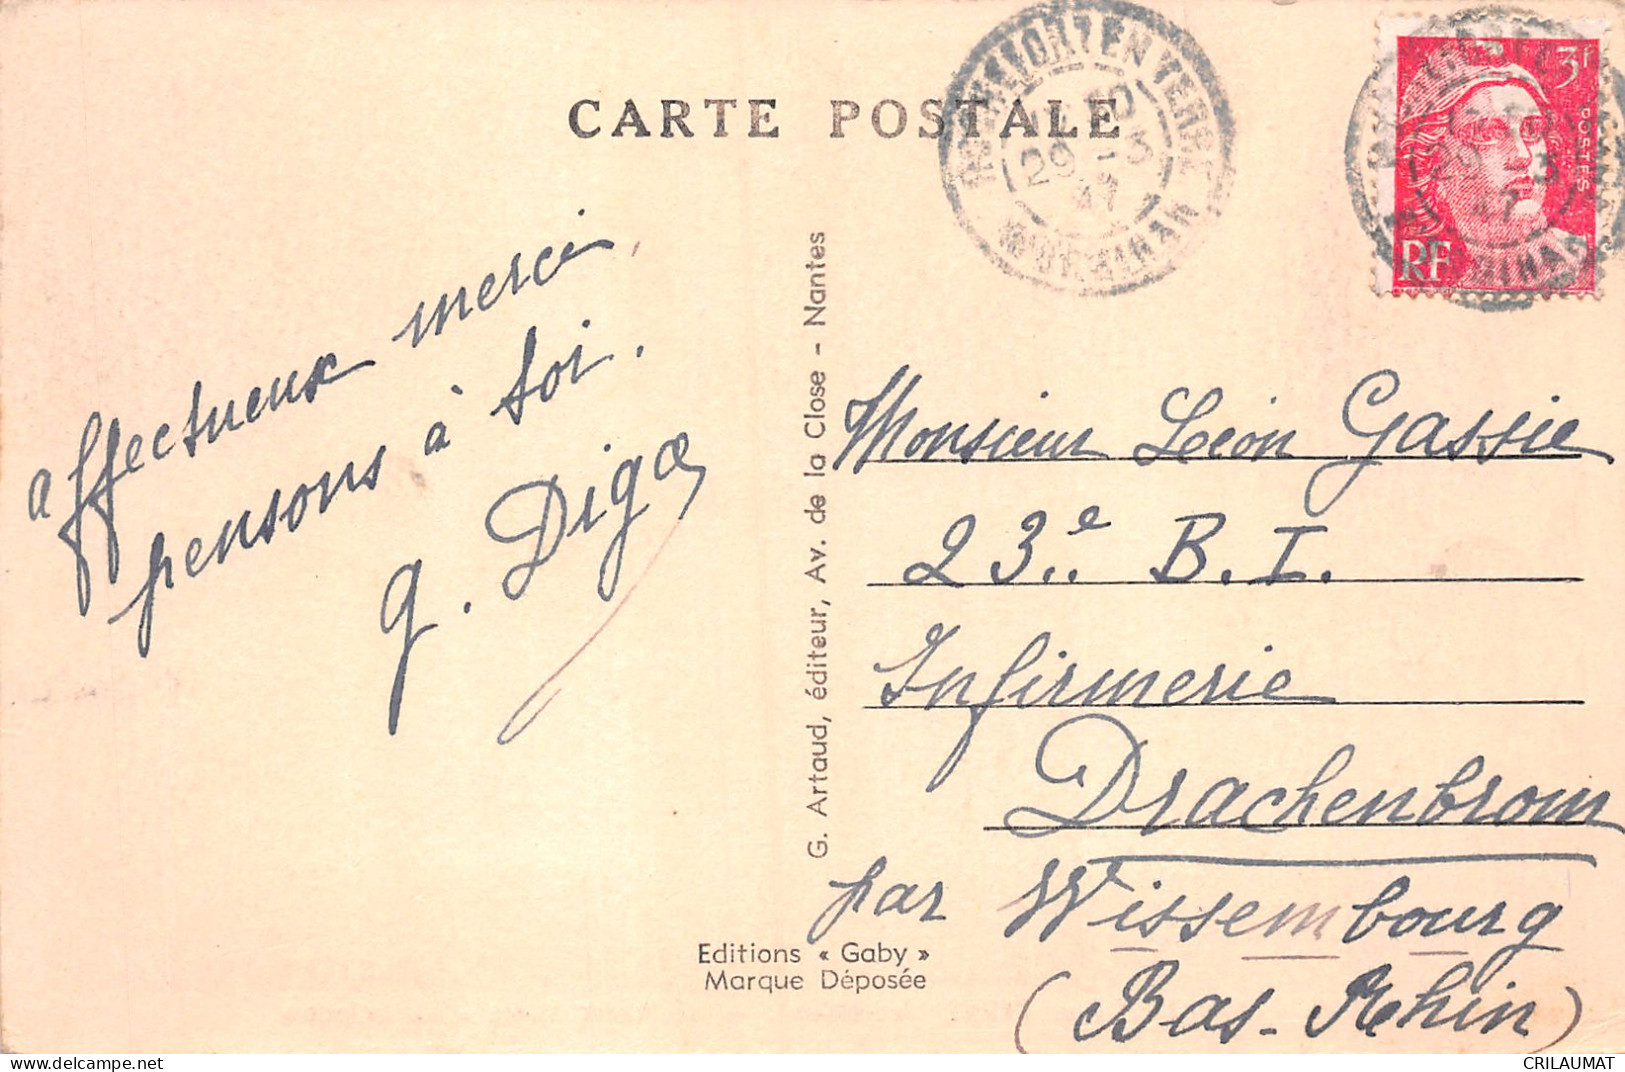 CARTE POSTALE
29 - 3
47
3f
POSTES
RF
affectueux merci,
pensons à toi.
G. Diga
G. Artaud, éditeur, Av. de la Close - Nantes
Editions « Gaby »
Marque Déposée
Monsieur Léon Gassie
23e B. I.
Infirmerie
Drachenbronn
par Wissembourg
(Bas-Rhin)
CRILAUMAT